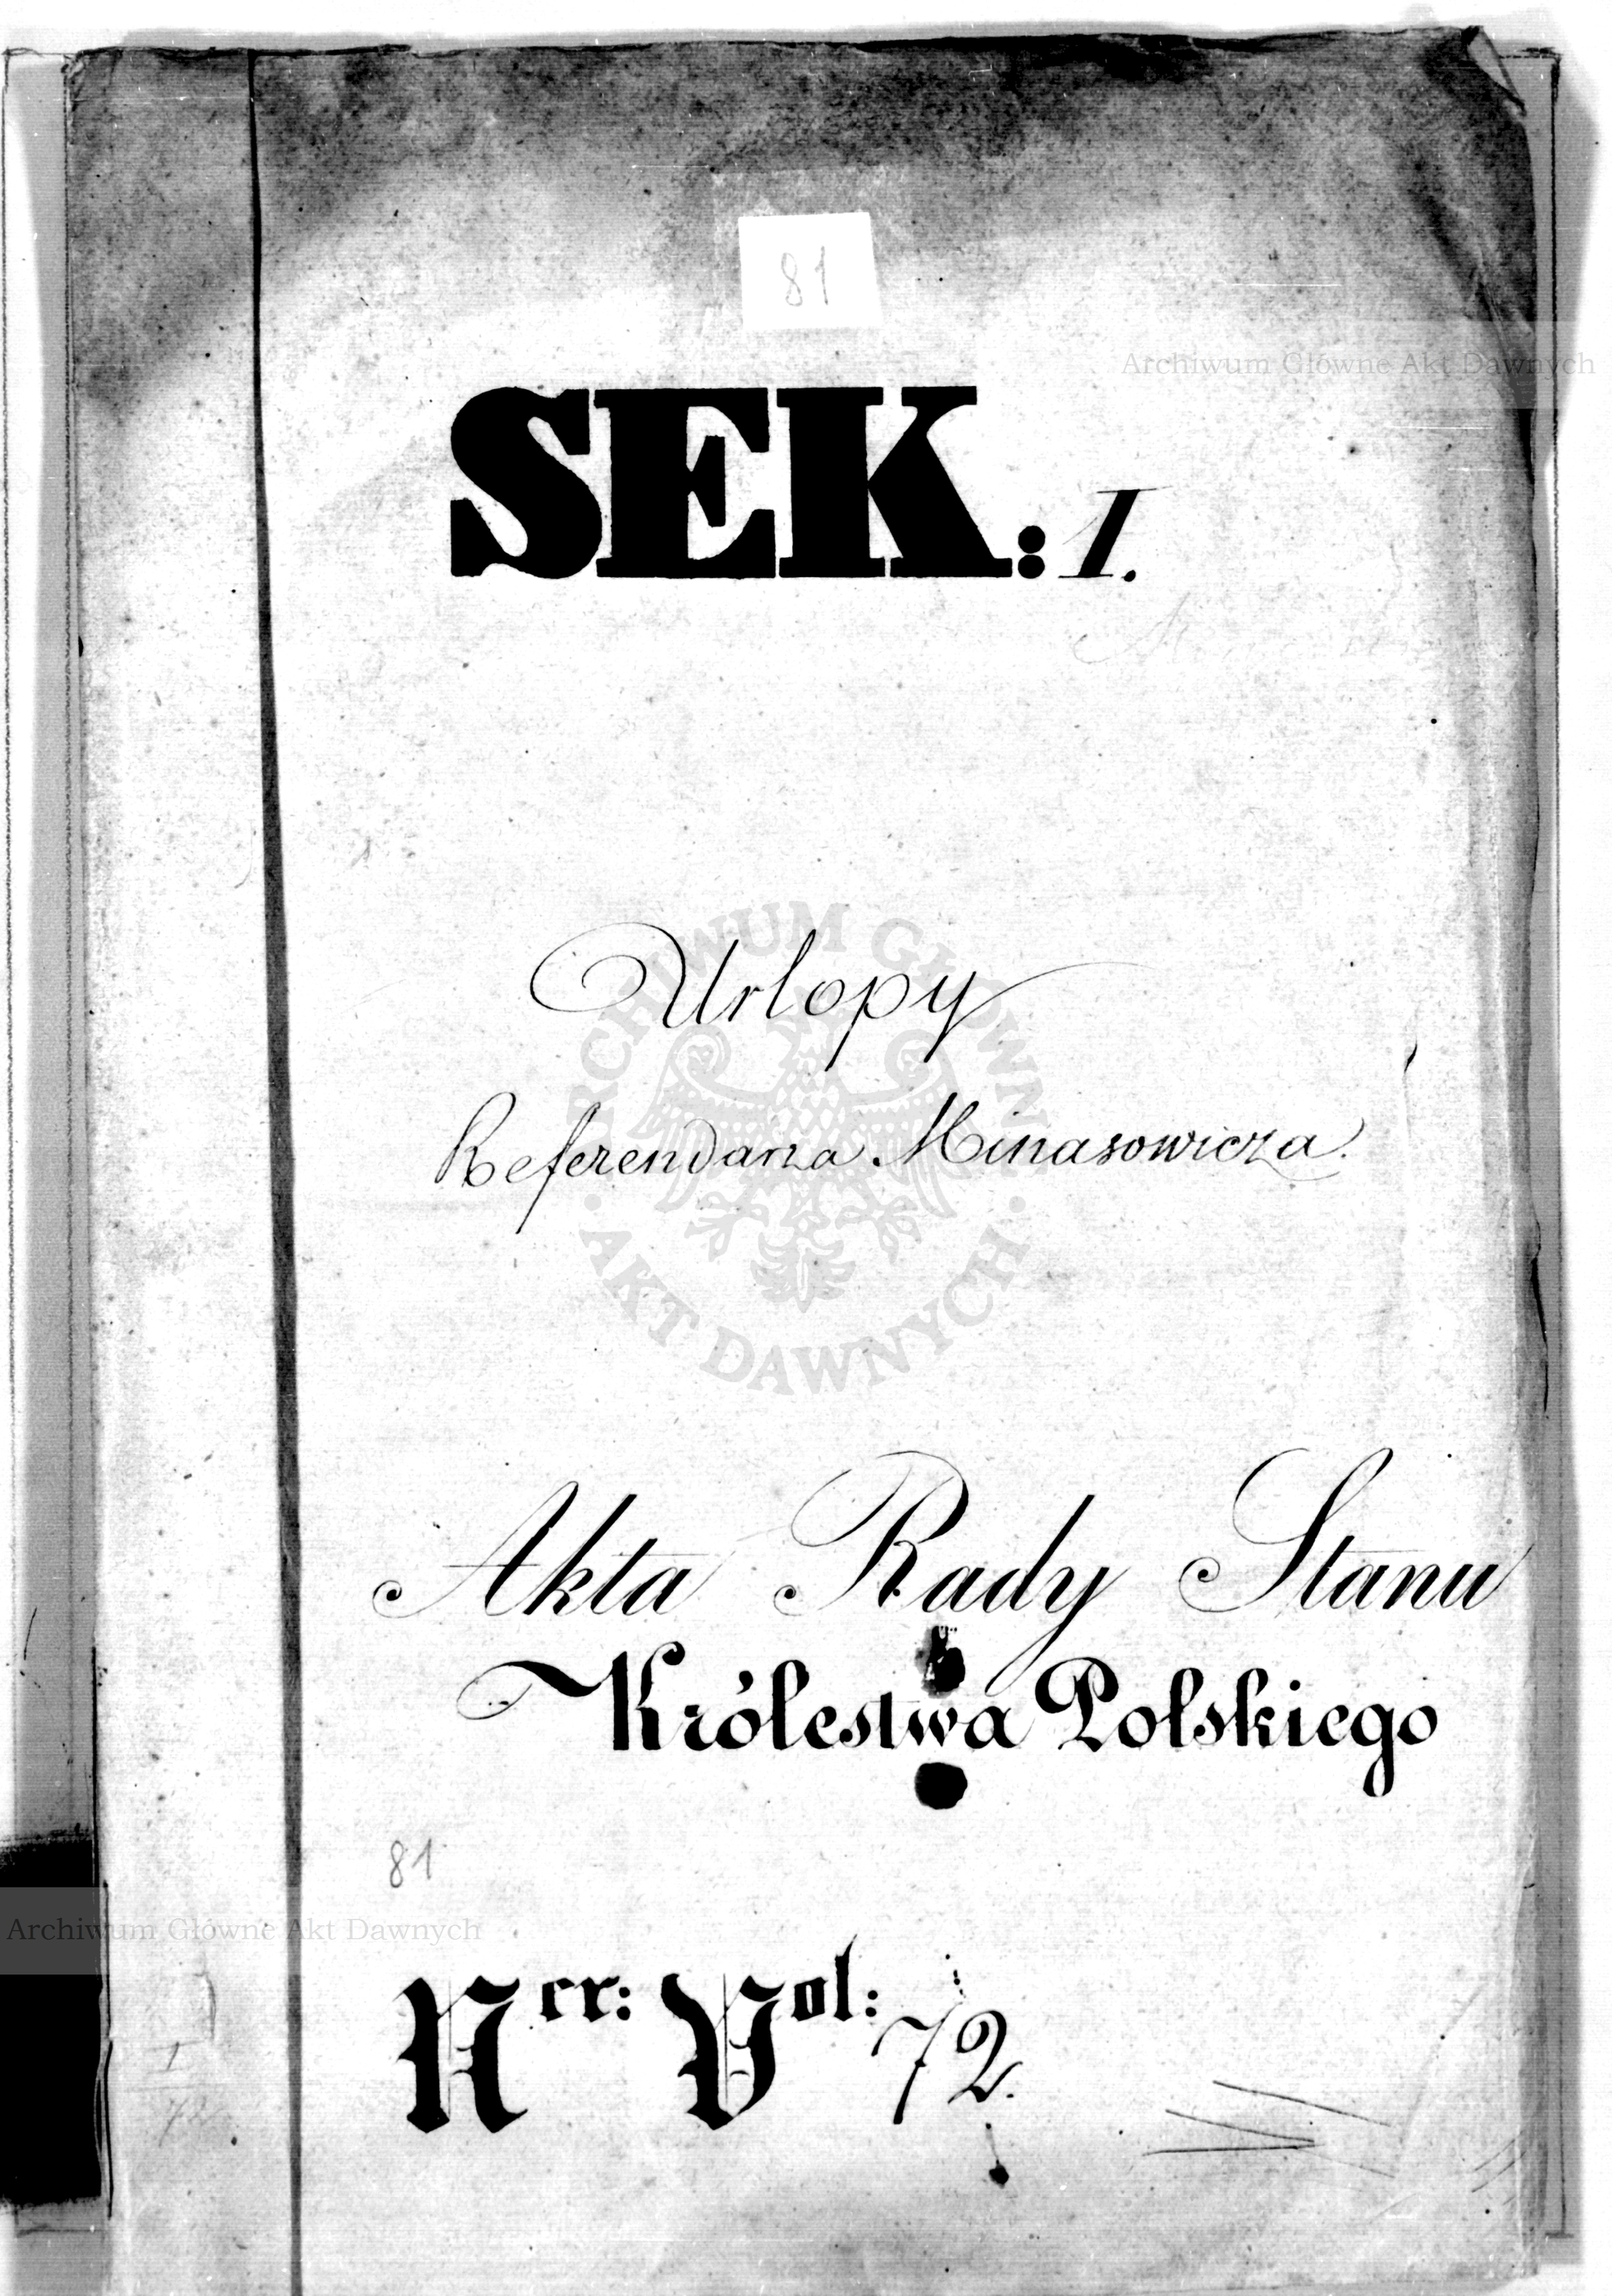 81
Archiwum Główne Akt Dawnych
SEK: I.
Urlopy
Referendarza Minasowicza.
ARCHIWUM GŁÓWNE · AKT DAWNYCH ·
Akta Rady Stanu
Królestwa Polskiego
81
Archiwum Główne Akt Dawnych
Ner: Vol: 72.
I
72